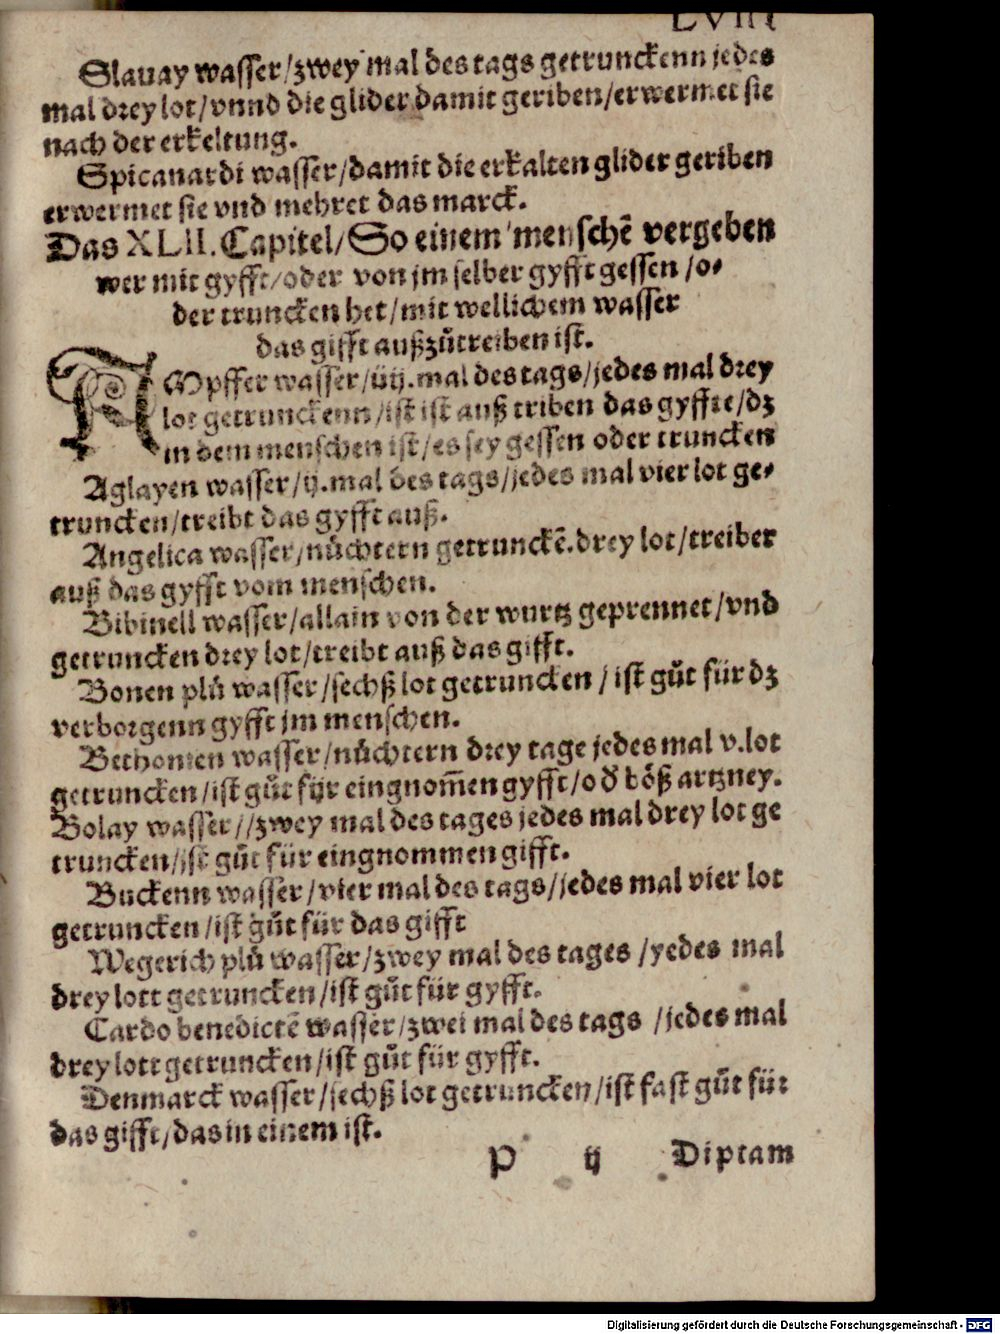 LVIII
Slauay wasser/zwey mal des tags getrunckenn jedes
mal drey lot/vnnd die glider damit geriben/erwermet sie
nach der erkeltung.
Spicanardi wasser/damit die erkalten glider geriben
erwermet sie vnd mehret das marck.
Das XLII. Capitel/So einem menschē vergeben
wer mit gyfft/oder von jm selber gyfft gessen /o⸗
der truncken het/mit wellichem wasser
das gifft außzůtreiben ist.
AMpffer wasser/iij.mal des tags/jedes mal drey
lot getrunckenn/ist ist auß triben das gyffte/dz
in dem menschen ist/es sey gessen oder truncken
Aglayen wasser/ij.mal des tags/jedes mal vier lot ge⸗
truncken/treibt das gyfft auß.
Angelica wasser/nůchtern getrunckē.drey lot/treiber
auß das gyfft vom menschen.
Bibinell wasser/allain von der wurtz geprennet/vnd
getruncken drey lot/treibt auß das gifft.
Bonen plů wasser/sechß lot getruncken / ist gůt für dz
verborgenn gyfft jm menschen.
Bethonien wasser/nůchtern drey tage jedes mal v.lot
getruncken/ist gůt für eingnom̄en gyfft/od̄ bôß artzney.
Bolay wasser//zwey mal des tages jedes mal drey lot ge
truncken/jst gůt für eingnommen gifft.
Buckenn wasser/vier mal des tags/jedes mal vier lot
getruncken/ist gůt für das gifft
Wegerich plů wasser/zwey mal des tages /yedes mal
drey lott getruncken/ist gůt für gyfft.
Cardo benedictē wasser/zwei mal des tags /jedes mal
drey lott getruncken/ist gůt für gyfft.
Denmarck wasser/sechß lot getruncken/ist fast gůt für
das gifft/das in einem ist.
P ij Diptam
Digitalisierung gefördert durch die Deutsche Forschungsgemeinschaft - DFG